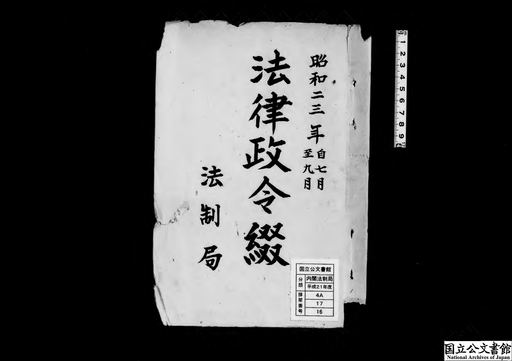 昭和二三年自七月
至九月
法律政令綴
法制局
国立公文書館
分類
内閣法制局
平成21年度
排架番号
4A
17
16
1 2 3 4 5 6 7 8 9
国立公文書館
National Archives of Japan